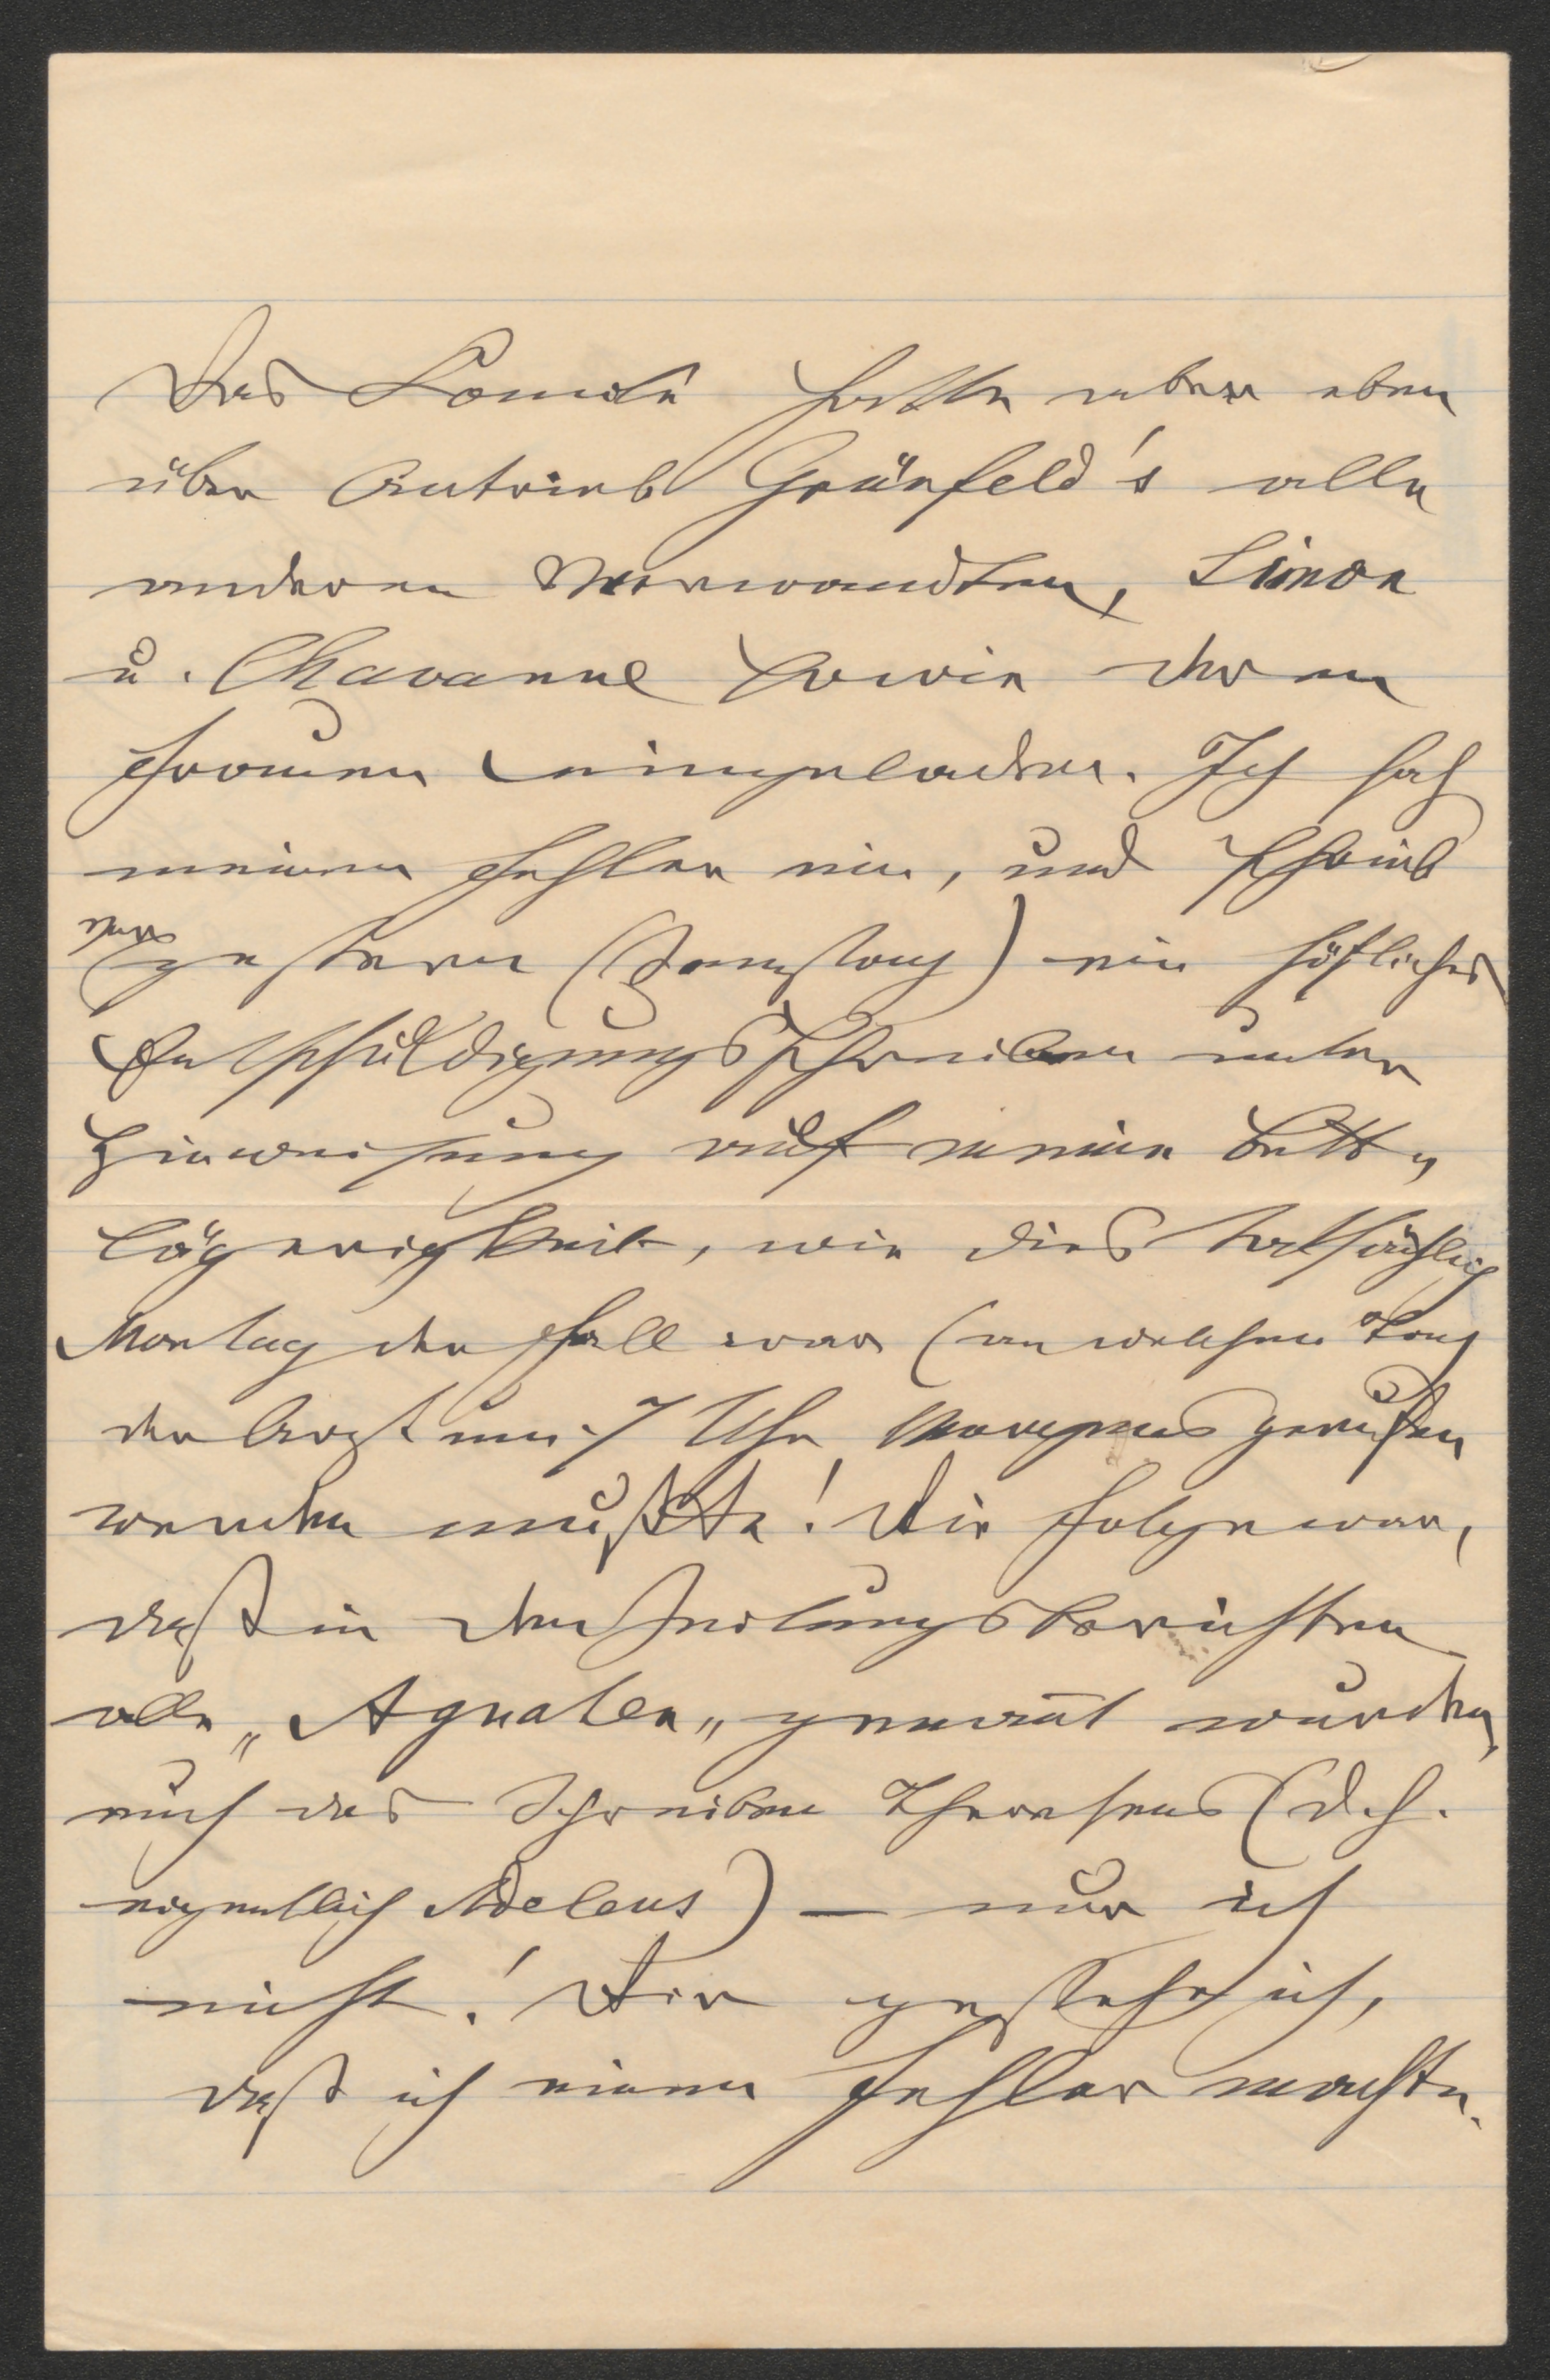 Das Comité hatte aber eben
über Antrieb Grünfeld's alle
anderen Verwandten, Simon
u. Chavanne sowie deren
Frauen eingeladen. Ich sah
meinen Fehler ein, und schrieb
nur
gestern (Samstag) ein höfliches
Entschuldigungsschreiben unter
Hinweisung auf meine Bett„
lägerigkeit, wie dies tatsächlich
Montag der Fall war (an welchem Tag
der Arzt um 7 Uhr Morgens gerufen
werden mußte! Die Folge war,
daß in den Zeitungsberichten
alle „Agnaten„ genannt wurden,
auch das Schreiben Theresens (d. h.
eigentlich Adelens) — nur ich
nicht! Dir gestehe ich,
daß ich einen Fehler machte.